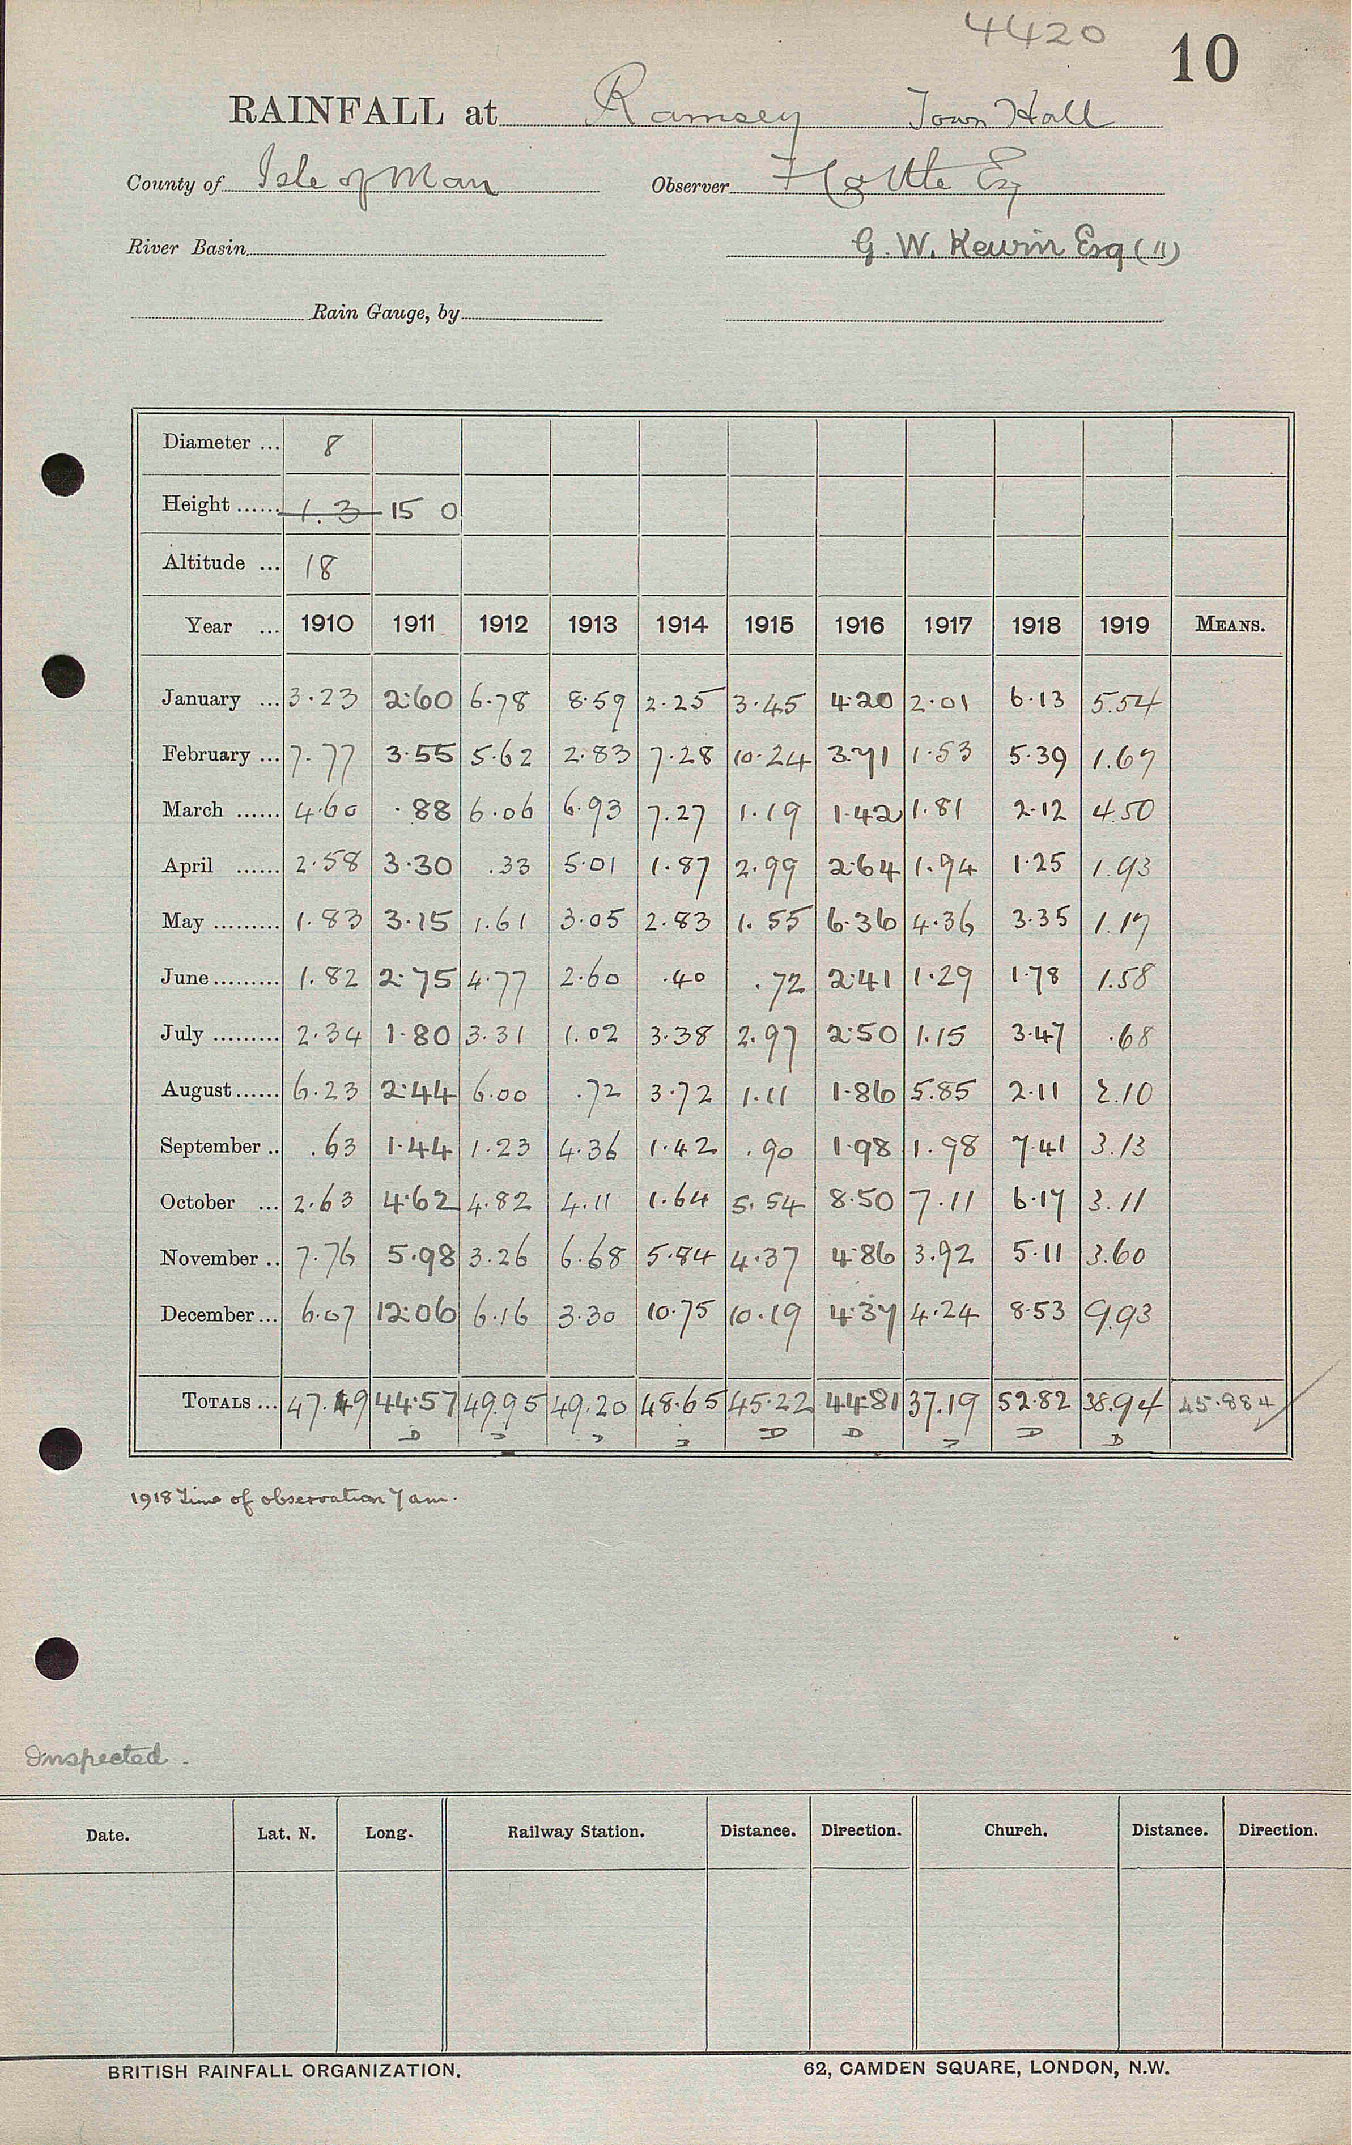 4420
10
RAINFALL at Ramsey Town Hall
County of Isle of Man Observer Esq
River Basin G. W. Kewin Esq (11)
Rain Gauge, by
Diameter ... 8
Height ...... 1.3 15 0
Altitude ... 18
Year ... 1910 1911 1912 1913 1914 1915 1916 1917 1918 1919 MEANS.
January ... 3.23 2.60 6.78 8.59 2.25 3.45 4.20 2.01 6.13 5.54
February ... 7.77 3.55 5.62 2.83 7.28 10.24 3.71 1.53 5.39 1.67
March ...... 4.60 .88 6.06 6.93 7.27 1.19 1.42 1.81 2.12 4.50
April ...... 2.58 3.30 .33 5.01 1.87 2.99 2.64 1.94 1.25 1.93
May ......... 1.83 3.15 1.61 3.05 2.83 1.55 6.36 4.36 3.35 1.17
June ......... 1.82 2.75 4.77 2.60 .40 .72 2.41 1.29 1.78 1.58
July ......... 2.34 1.80 3.31 1.02 3.38 2.97 2.50 1.15 3.47 .68
August ...... 6.23 2.44 6.00 .72 3.72 1.11 1.86 5.85 2.11 2.10
September .. .63 1.44 1.23 4.36 1.42 .90 1.98 1.98 7.41 3.13
October ... 2.63 4.62 4.82 4.11 1.64 5.54 8.50 7.11 6.17 3.11
November .. 7.76 5.98 3.26 6.68 5.84 4.37 4.86 3.92 5.11 3.60
December ... 6.07 12.06 6.16 3.30 10.75 10.19 4.37 4.24 8.53 9.93
TOTALS ... 47.49 44.57 49.95 49.20 48.65 45.22 44.81 37.19 52.82 38.94 45.884
D D D D D D D D D
1918 Time of observation 7 am.
Inspected.
Date. Lat. N. Long. Railway Station. Distance. Direction. Church. Distance. Direction.
BRITISH RAINFALL ORGANIZATION. 62, CAMDEN SQUARE, LONDON, N.W.